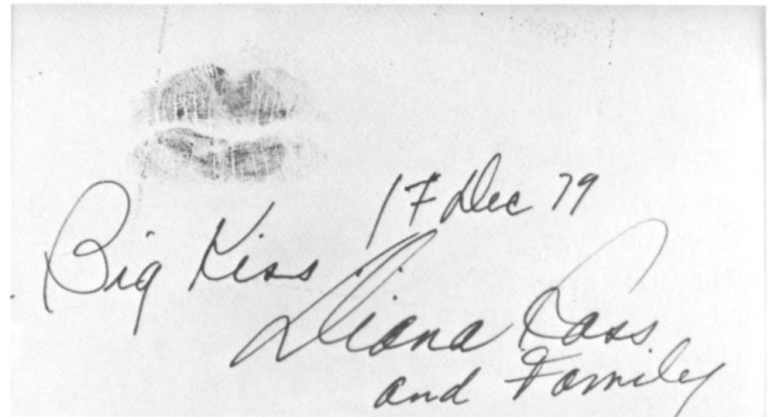 17 Dec 79
Big Kiss
Diana Ross
and Family